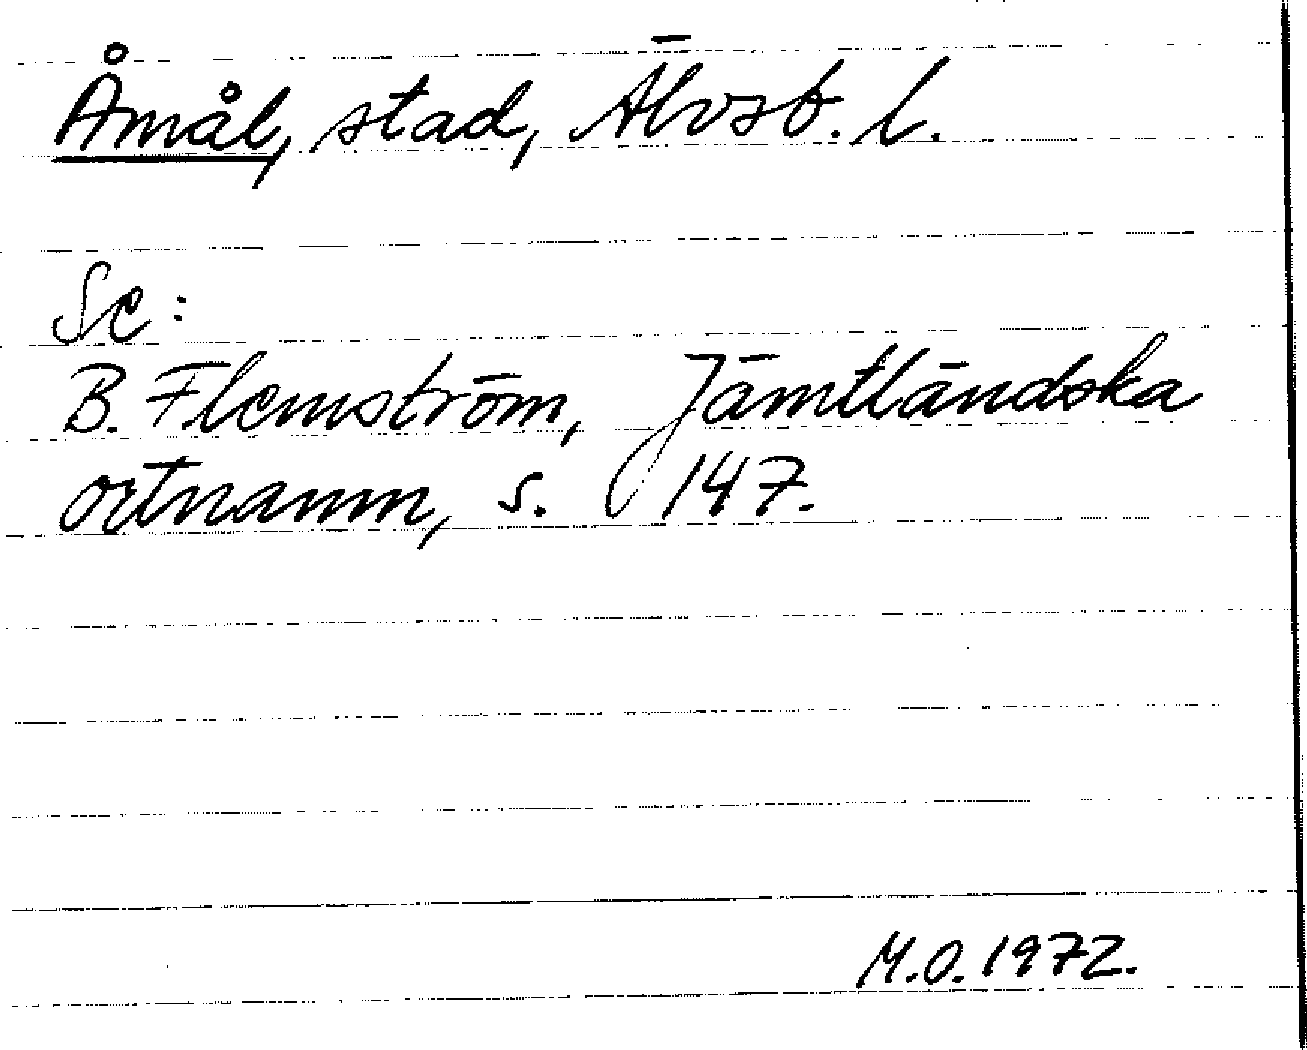 Åmål, stad, Älvsb. l.
Se:
B. Flemström, Jämtländska
ortnamn, s. 147.
M.O. 1972.